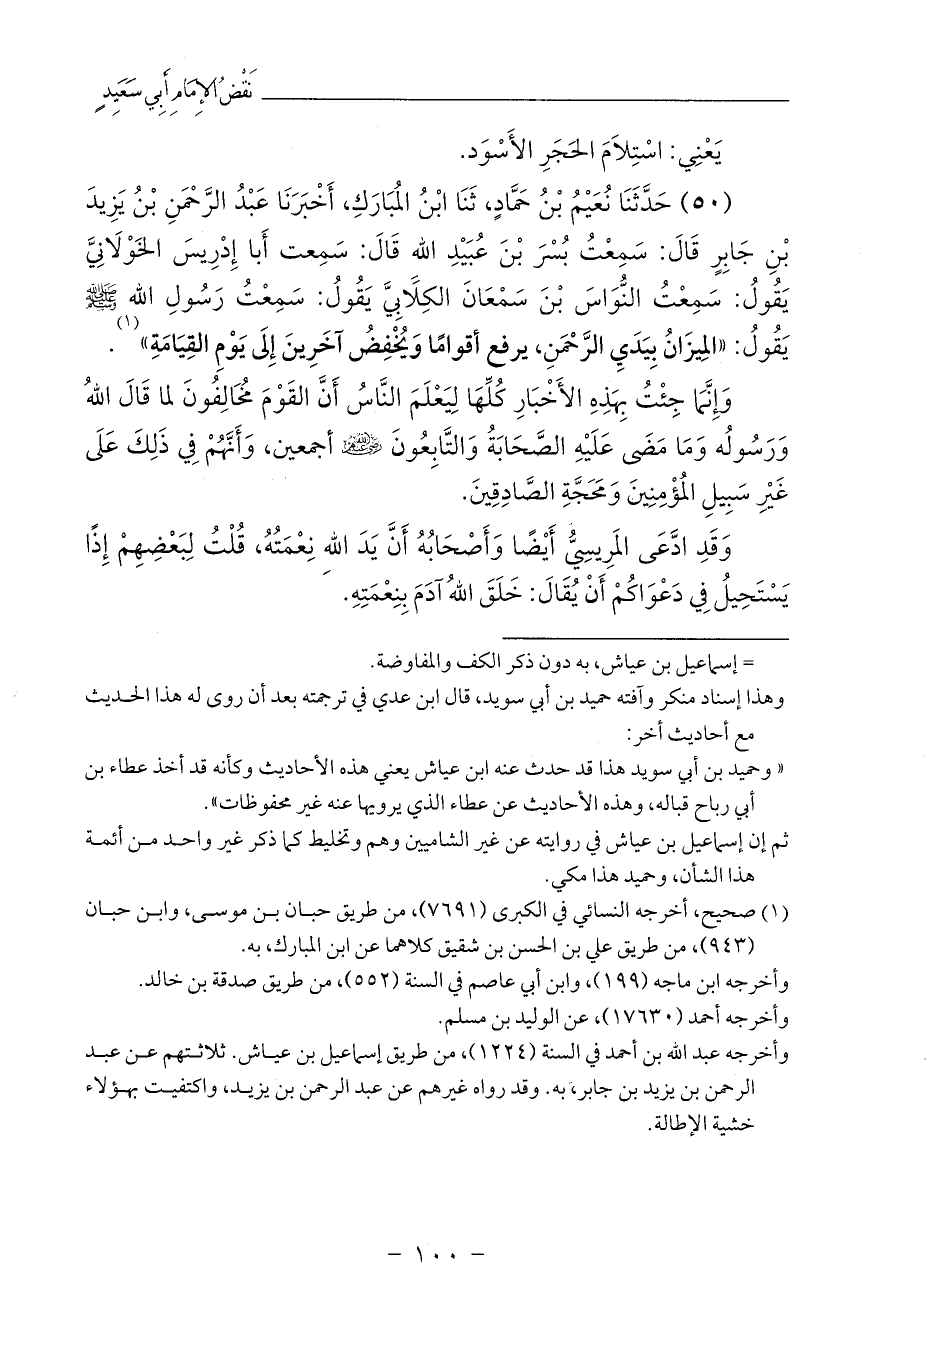 نَقْضُ الإِمَامِ أَبِي سَعِيدٍ
يَعْنِي: اسْتِلَامَ الحَجَرِ الأَسْوَد.
(٥٠) حَدَّثَنَا نُعَيْمُ بْنُ حَمَّادٍ، ثَنَا ابْنُ المُبَارَكِ، أَخْبَرَنَا عَبْدُ الرَّحْمَنِ بْنُ يَزِيدَ
بْنِ جَابِرٍ قَالَ: سَمِعْتُ بُسْرَ بْنَ عُبَيْدِ الله قَالَ: سَمِعت أَبا إِدْرِيسَ الخَوْلَانِيَّ
يَقُولُ: سَمِعْتُ النُّوَاسَ بْنَ سَمْعَانَ الكِلَابِيَّ يَقُولُ: سَمِعْتُ رَسُولِ الله ﷺ
يَقُولُ: «المِيزَانُ بِيَدَيِ الرَّحْمَنِ، يرفع أقوامًا وَيُخْفِضُ آخَرِينَ إِلَى يَوْمِ القِيَامَةِ»(١).
وَإِنَّمَا جِئْتُ بِهَذِهِ الأَخْبَارِ كُلِّهَا لِيَعْلَمَ النَّاسُ أَنَّ القَوْمَ مُخَالِفُونَ لما قَالَ اللهُ
وَرَسُولُه وَمَا مَضَى عَلَيْهِ الصَّحَابَةُ وَالتَّابِعُونَ أجمعين، وَأَنَّهُمْ فِي ذَلِكَ عَلَى
غَيْرِ سَبِيلِ المُؤْمِنِينَ وَمَحَجَّةِ الصَّادِقِينَ.
وَقَدِ ادَّعَى المَرِيسِيُّ أَيْضًا وَأَصْحَابُهُ أَنَّ يَدَ اللهِ نِعْمَتُهُ، قُلْتُ لِبَعْضِهِمْ إِذًا
يَسْتَحِيلُ فِي دَعْوَاكُمْ أَنْ يُقَالَ: خَلَقَ اللهُ آدَمَ بِنِعْمَتِهِ.
= إسماعيل بن عياش، به دون ذكر الكف والمفاوضة.
وهذا إسناد منكر وآفته حميد بن أبي سويد، قال ابن عدي في ترجمته بعد أن روى له هذا الحديث
مع أحاديث أخر:
« وحميد بن أبي سويد هذا قد حدث عنه ابن عياش يعني هذه الأحاديث وكأنه قد أخذ عطاء بن
أبي رباح قباله، وهذه الأحاديث عن عطاء الذي يرويها عنه غير محفوظات».
ثم إن إسماعيل بن عياش في روايته عن غير الشاميين وهم وتخليط كما ذكر غير واحد من أئمة
هذا الشأن، وحميد هذا مكي.
(١) صحيح، أخرجه النسائي في الكبرى (٧٦٩١)، من طريق حبان بن موسى، وابن حبان
(٩٤٣)، من طريق علي بن الحسن بن شقيق كلاهما عن ابن المبارك، به.
وأخرجه ابن ماجه (١٩٩)، وابن أبي عاصم في السنة (٥٥٢)، من طريق صدقة بن خالد.
وأخرجه أحمد (١٧٦٣٠)، عن الوليد بن مسلم.
وأخرجه عبد الله بن أحمد في السنة (١٢٢٤)، من طريق إسماعيل بن عياش. ثلاثتهم عن عبد
الرحمن بن يزيد بن جابر، به. وقد رواه غيرهم عن عبد الرحمن بن يزيد، واكتفيت بهؤلاء
خشية الإطالة.
- ١٠٠ -